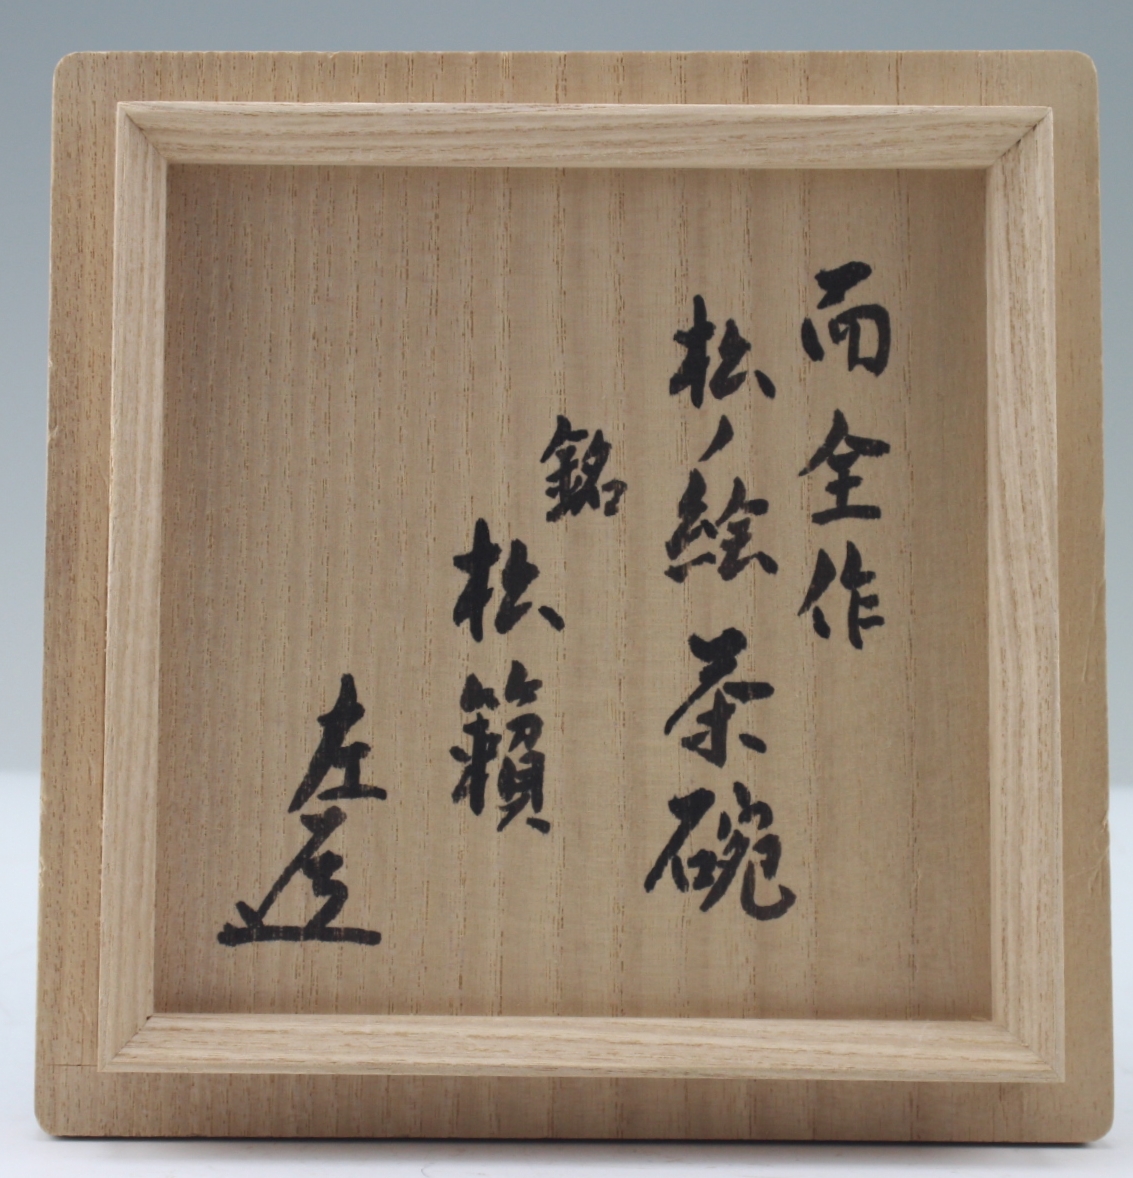 而全作
松ノ絵茶碗
銘
松籟
左